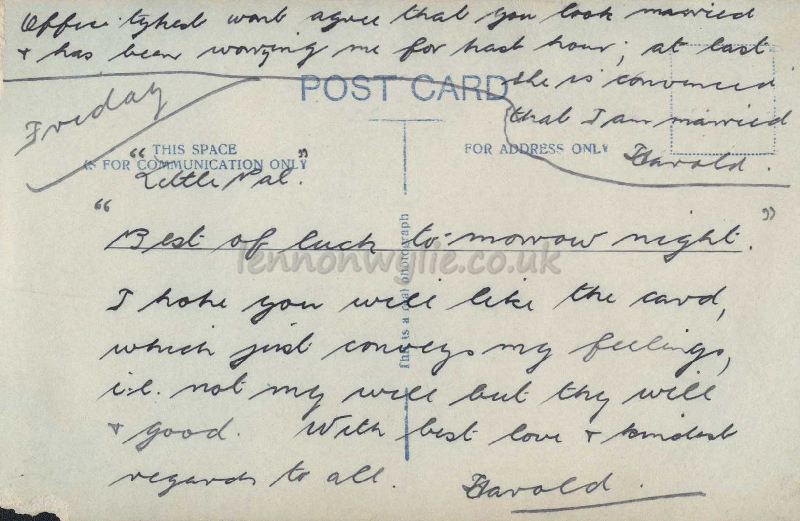 Office typest wont agree that you look married
& has been worrying me for past hour; at last
she is convinced
that I am married
Harold.
POST CARD
Friday
THIS SPACE
IS FOR COMMUNICATION ONLY
FOR ADDRESS ONLY
"Little Pal."
"Best of luck to-morrow night."
lennonwylie.co.uk
This is a real photograph
I hope you will like the card,
which just conveys my feelings,
i.e. not my will but thy will
& good. With best love & kindest
regards to all. Harold.